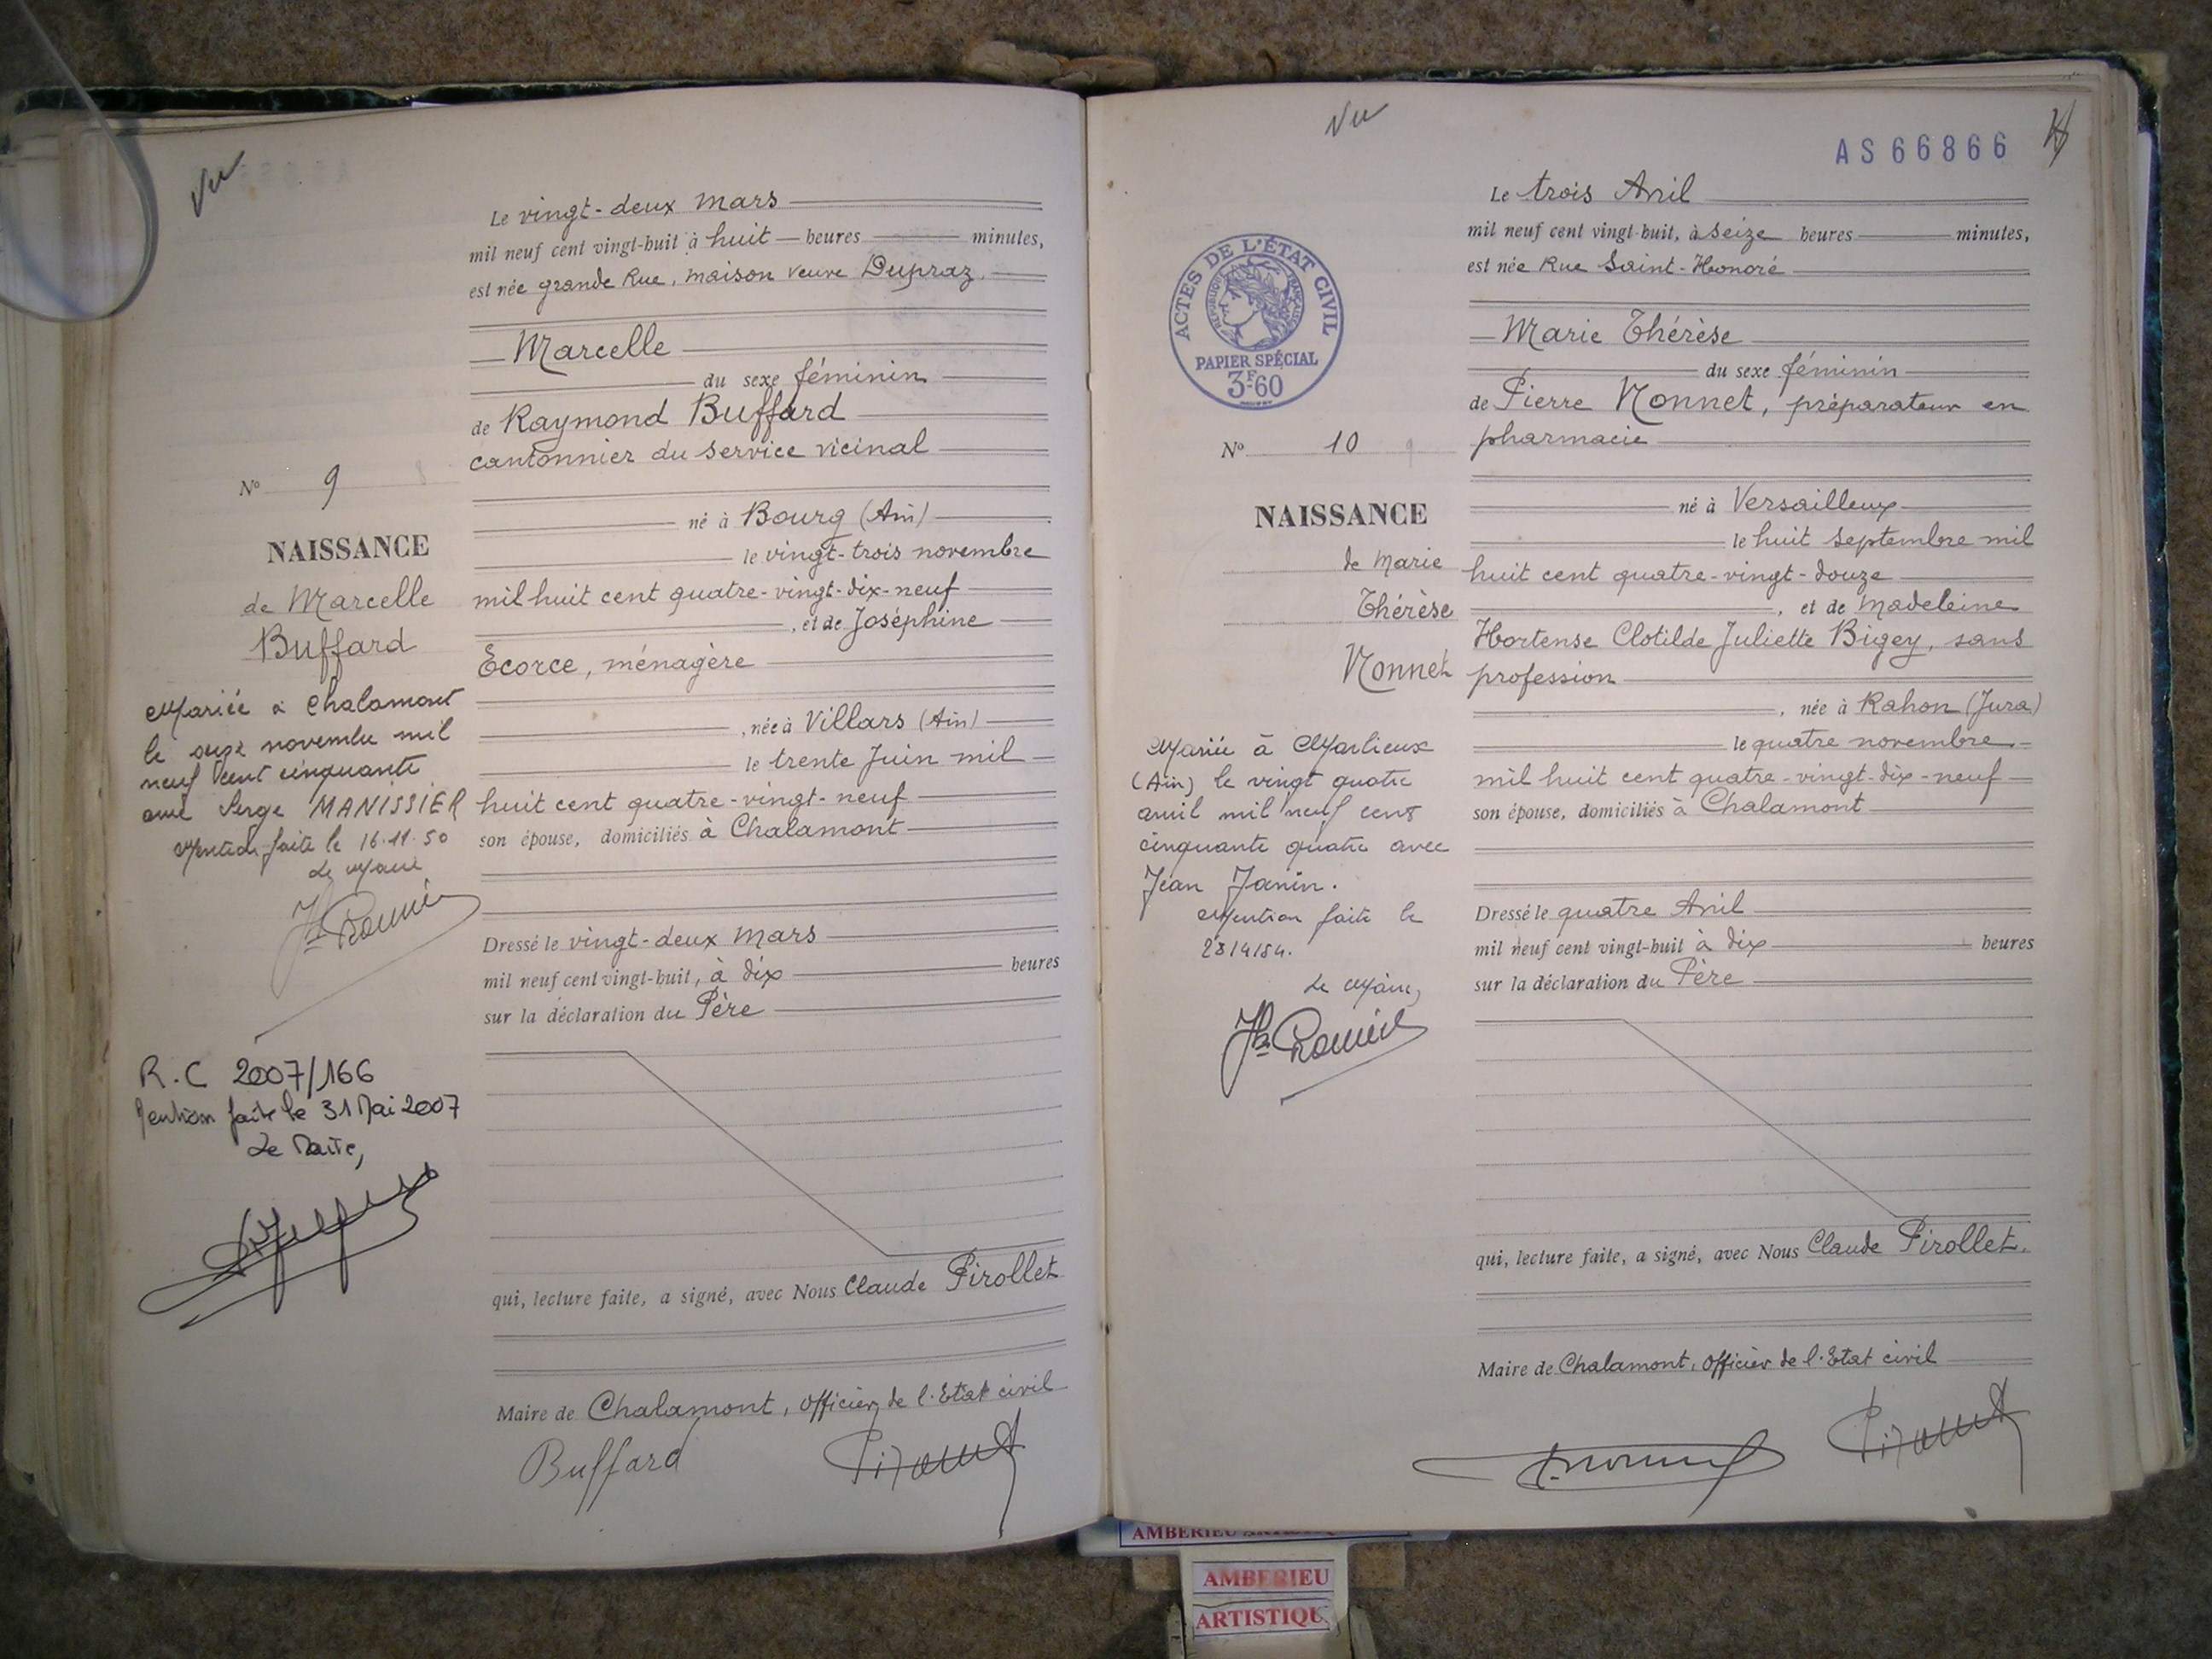 Vu
Le vingt-deux Mars
mil neuf cent vingt-huit à huit heures minutes,
est née grande Rue, maison veuve Dupraz.
Marcelle
du sexe féminin
de Raymond Buffard
cantonnier du service vicinal
né à Bourg (Ain)
le vingt-trois novembre
mil huit cent quatre-vingt-dix-neuf
, et de Joséphine
Ecorce, ménagère
, née à Villars (Ain)
le trente Juin mil
huit cent quatre-vingt-neuf
son épouse, domiciliés à Chalamont
Dressé le vingt-deux Mars
mil neuf cent vingt-huit, à dix heures
sur la déclaration du Père
qui, lecture faite, a signé, avec Nous Claude Pirollet
Maire de Chalamont, Officier de l'Etat civil
Buffard
Nº 9
NAISSANCE
de Marcelle
Buffard
Mariée à Chalamont
le onze novembre mil
neuf cent cinquante
avec Serge MANISSIER
Mention faite le 16.11.50
Le Maire
R.C 2007/166
Mention faite le 31 Mai 2007
Le Maire,
Vu
AS 66866
Le trois Avril
mil neuf cent vingt-huit, à seize heures minutes,
est née Rue Saint-Honoré
Marie Thérèse
du sexe féminin
de Pierre Monnet, préparateur en
pharmacie
né à Versailleux
le huit septembre mil
huit cent quatre-vingt-douze
, et de Madeleine
Hortense Clotilde Juliette Bigey, sans
profession
, née à Rahon (Jura)
le quatre novembre
mil huit cent quatre-vingt-dix-neuf
son épouse, domiciliés à Chalamont
Dressé le quatre Avril
mil neuf cent vingt-huit à dix heures
sur la déclaration du Père
qui, lecture faite, a signé, avec Nous Claude Pirollet.
Maire de Chalamont, Officier de l'Etat civil
ACTES DE L'ÉTAT CIVIL
RÉPUBLIQUE FRANÇAISE
PAPIER SPÉCIAL
3F.60
Nº 10
NAISSANCE
de Marie
Thérèse
Monnet
Mariée à Marlieux
(Ain) le vingt quatre
avril mil neuf cent
cinquante quatre avec
Jean Janin.
Mention faite le
28/4/54.
Le Maire,
AMBERIEU
AMBERIEU
ARTISTIQU